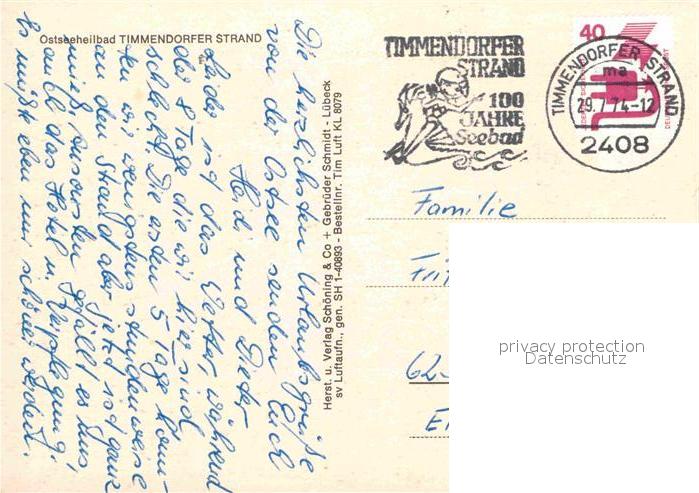 Ostseeheilbad TIMMENDORFER STRAND
Die herzlichsten Urlaubsgrüße
von der Ostsee senden Euch
Heidi und Dieter
Leider ist das Wetter, während
der 8 Tage die wir hier sind
schlecht. Die ersten 5 Tage konn-
ten wir wenigstens stundenweise
an den Strand aber jetzt ist ganz
mies. Ansonsten gefällt es uns
auch das Hotel u. Verpflegung.
Es müßte eben nur schöner werden.
Herst. u. Verlag Schöning & Co + Gebrüder Schmidt - Lübeck
sv Luftaufn., gen. SH 1-40893 - Bestellnr. Tim Luft KL 8079
TIMMENDORFER
STRAND
100
JAHRE
Seebad
TIMMENDORFER STRAND
ma
29.7.74-12
2408
40
Familie
62
privacy protection
Datenschutz